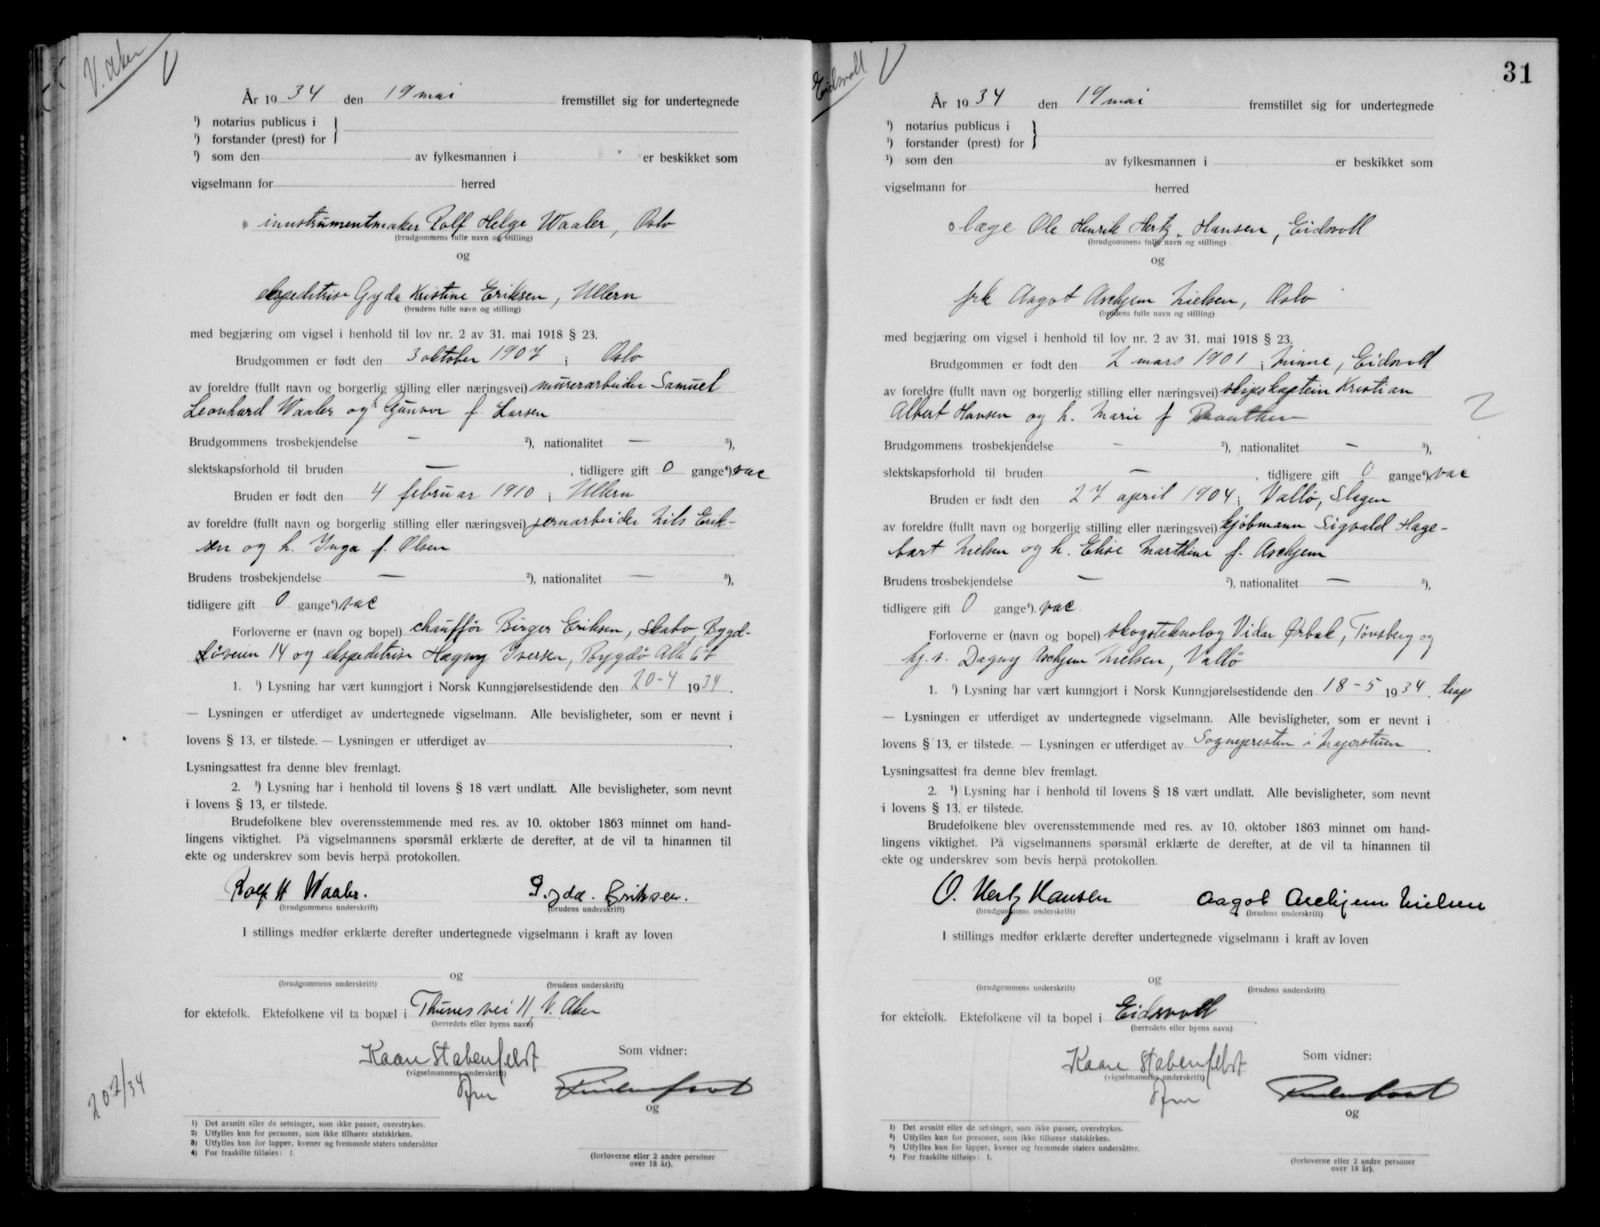 V. Aker
V
År 1934 den 19 mai fremstillet sig for undertegnede
¹) notarius publicus i
¹) forstander (prest) for
¹) som den av fylkesmannen i er beskikket som
vigselmann for herred
innstrumentmaker Rolf Helge Waaler, Oslo
(brudgommens fulle navn og stilling)
og
ekspeditrise Gyda Kristine Eriksen, Ullern
(brudens fulle navn og stilling)
med begjæring om vigsel i henhold til lov nr. 2 av 31. mai 1918 § 23.
Brudgommen er født den 3 oktober 1907 i Oslo
av foreldre (fullt navn og borgerlig stilling eller næringsvei) murerarbeider Samuel
Leonhard Waaler og Gunvor f. Larsen
Brudgommens trosbekjendelse — ²), nationalitet — ³),
slektskapsforhold til bruden —, tidligere gift 0 gange⁴) vac
Bruden er født den 4 februar 1910 i Ullern
av foreldre (fullt navn og borgerlig stilling eller næringsvei) jernarbeider Nils Erik-
sen og h. Inga f. Olsen
Brudens trosbekjendelse — ²), nationalitet — ³),
tidligere gift 0 gange⁴) vac
Forloverne er (navn og bopel) chauffør Birger Eriksen, Skabo, Bygd-
øveien 14 og ekspeditrise Iversen, Bygdø Allé
1. ¹) Lysning har vært kunngjort i Norsk Kunngjørelsestidende den 20-4 1934.
— Lysningen er utferdiget av undertegnede vigselmann. Alle bevisligheter, som er nevnt i
lovens § 13, er tilstede. — Lysningen er utferdiget av .
Lysningsattest fra denne blev fremlagt.
2. ¹) Lysning har i henhold til lovens § 18 vært undlatt. Alle bevisligheter, som nevnt
i lovens § 13, er tilstede.
Brudefolkene blev overensstemmende med res. av 10. oktober 1863 minnet om hand-
lingens viktighet. På vigselmannens spørsmål erklærte de derefter, at de vil ta hinannen til
ekte og underskrev som bevis herpå protokollen.
Rolf H Waaler. Gyda. Eriksen.
(brudgommens underskrift) (brudens underskrift)
I stillings medfør erklærte derefter undertegnede vigselmann i kraft av loven
og
(brudgommens underskrift) (brudens underskrift)
for ektefolk. Ektefolkene vil ta bopæl i Thunes vei 11, V. Aker
(herredets eller byens navn)
Kaare Stabenfeldt Som vidner:
(vigselmannens underskrift)
og
202/34
1) Det avsnitt eller de setninger, som ikke passer, overstrykes.
2) Utfylles kun for personer, som ikke tilhører statskirken.
3) Utfylles kun for lapper, kvener og fremmede staters undersåtter
4) For fraskilte tilføies: f.
(forloverne eller 2 andre personer
over 18 år).
Eidsvoll
V
31
År 1934 den 19 mai fremstillet sig for undertegnede
¹) notarius publicus i
¹) forstander (prest) for
¹) som den av fylkesmannen i er beskikket som
vigselmann for herred
læge Ole Henrik Hertz-Hansen, Eidsvoll
(brudgommens fulle navn og stilling)
og
frk Aagot Aschjem Nielsen, Oslo
(brudens fulle navn og stilling)
med begjæring om vigsel i henhold til lov nr. 2 av 31. mai 1918 § 23.
Brudgommen er født den 2 mars 1901 i Minne, Eidsvoll
av foreldre (fullt navn og borgerlig stilling eller næringsvei) skipskaptein Kristian
Albert Hansen og h. Marie f
2
Brudgommens trosbekjendelse — ²), nationalitet — ³),
slektskapsforhold til bruden —, tidligere gift 0 gange⁴) vac
Bruden er født den 27 april 1904 i Vallø, Slagen
av foreldre (fullt navn og borgerlig stilling eller næringsvei) kjøbmann Sigvald Hage-
bart Nielsen og h. Elise Marthine f. Aschjem
Brudens trosbekjendelse — ²), nationalitet — ³),
tidligere gift 0 gange⁴). vac.
Forloverne er (navn og bopel) skogsteknolog Vidar Ørbak, Tønsberg og
Dagny Aschjem Nielsen, Vallø
1. ¹) Lysning har vært kunngjort i Norsk Kunngjørelsestidende den 18-5 1934.
— Lysningen er utferdiget av undertegnede vigselmann. Alle bevisligheter, som er nevnt i
lovens § 13, er tilstede. — Lysningen er utferdiget av Sognepresten i Majorstuen.
Lysningsattest fra denne blev fremlagt.
2. ¹) Lysning har i henhold til lovens § 18 vært undlatt. Alle bevisligheter, som nevnt
i lovens § 13, er tilstede.
Brudefolkene blev overensstemmende med res. av 10. oktober 1863 minnet om hand-
lingens viktighet. På vigselmannens spørsmål erklærte de derefter, at de vil ta hinannen til
ekte og underskrev som bevis herpå protokollen.
O. Hertz Hansen Aagot Aschjem Nielsen
(brudgommens underskrift) (brudens underskrift)
I stillings medfør erklærte derefter undertegnede vigselmann i kraft av loven
og
(brudgommens underskrift) (brudens underskrift)
for ektefolk. Ektefolkene vil ta bopel i Eidsvoll
(herredets eller byens navn)
Kaare Stabenfeldt Som vidner:
(vigselmannens underskrift)
og
¹) Det avsnitt eller de setninger, som ikke passer, overstrykes.
²) Utfylles kun for personer, som ikke tilhører statskirken.
³) Utfylles kun for lapper, kvener og fremmede staters undersåtter.
⁴) For fraskilte tilføies: f.
(forloverne eller 2 andre personer
over 18 år).